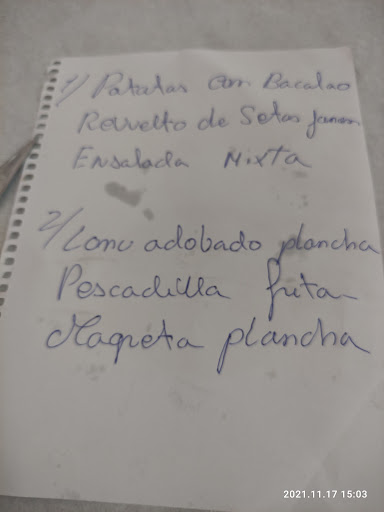 1/ Patatas con Bacalao
Revuelto de Setas
Ensalada Mixta
2/ Lomo adobado plancha
Pescadilla frita
Magreta plancha
2021.11.17 15:03